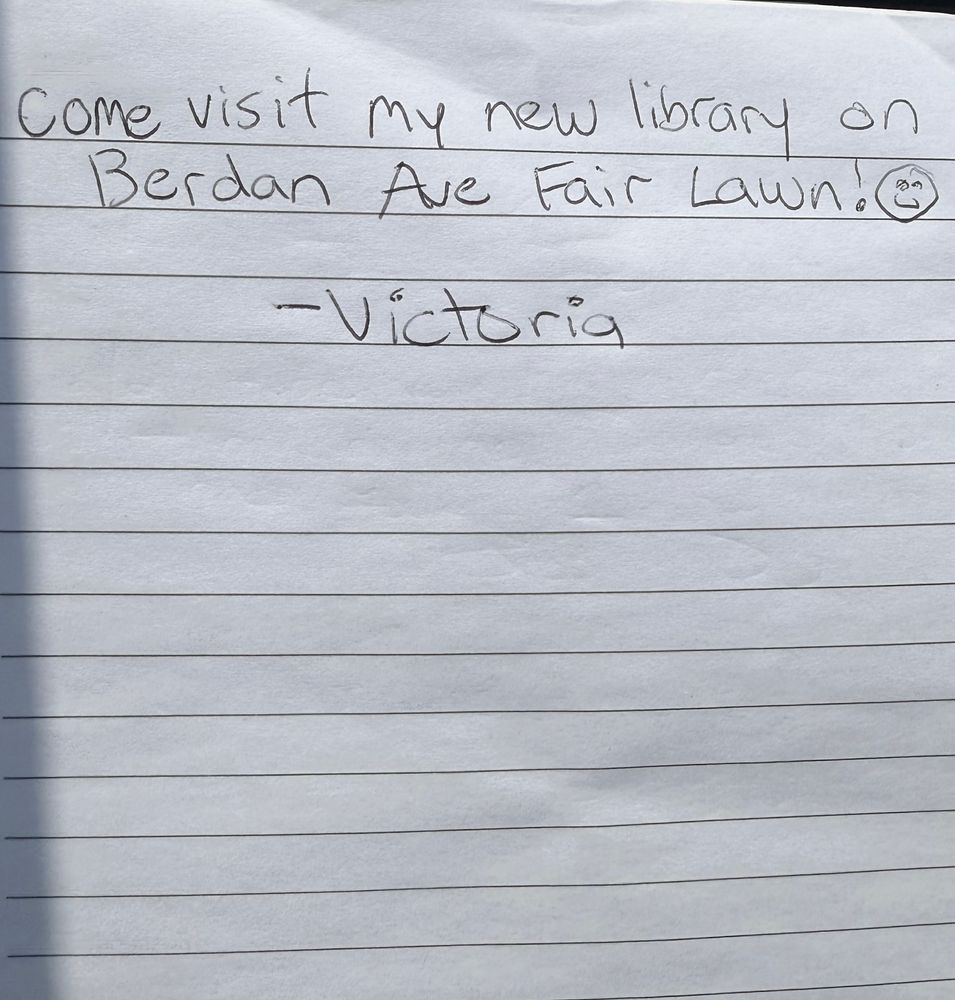 Come visit my new library on
Berdan Ave Fair Lawn!
-Victoria